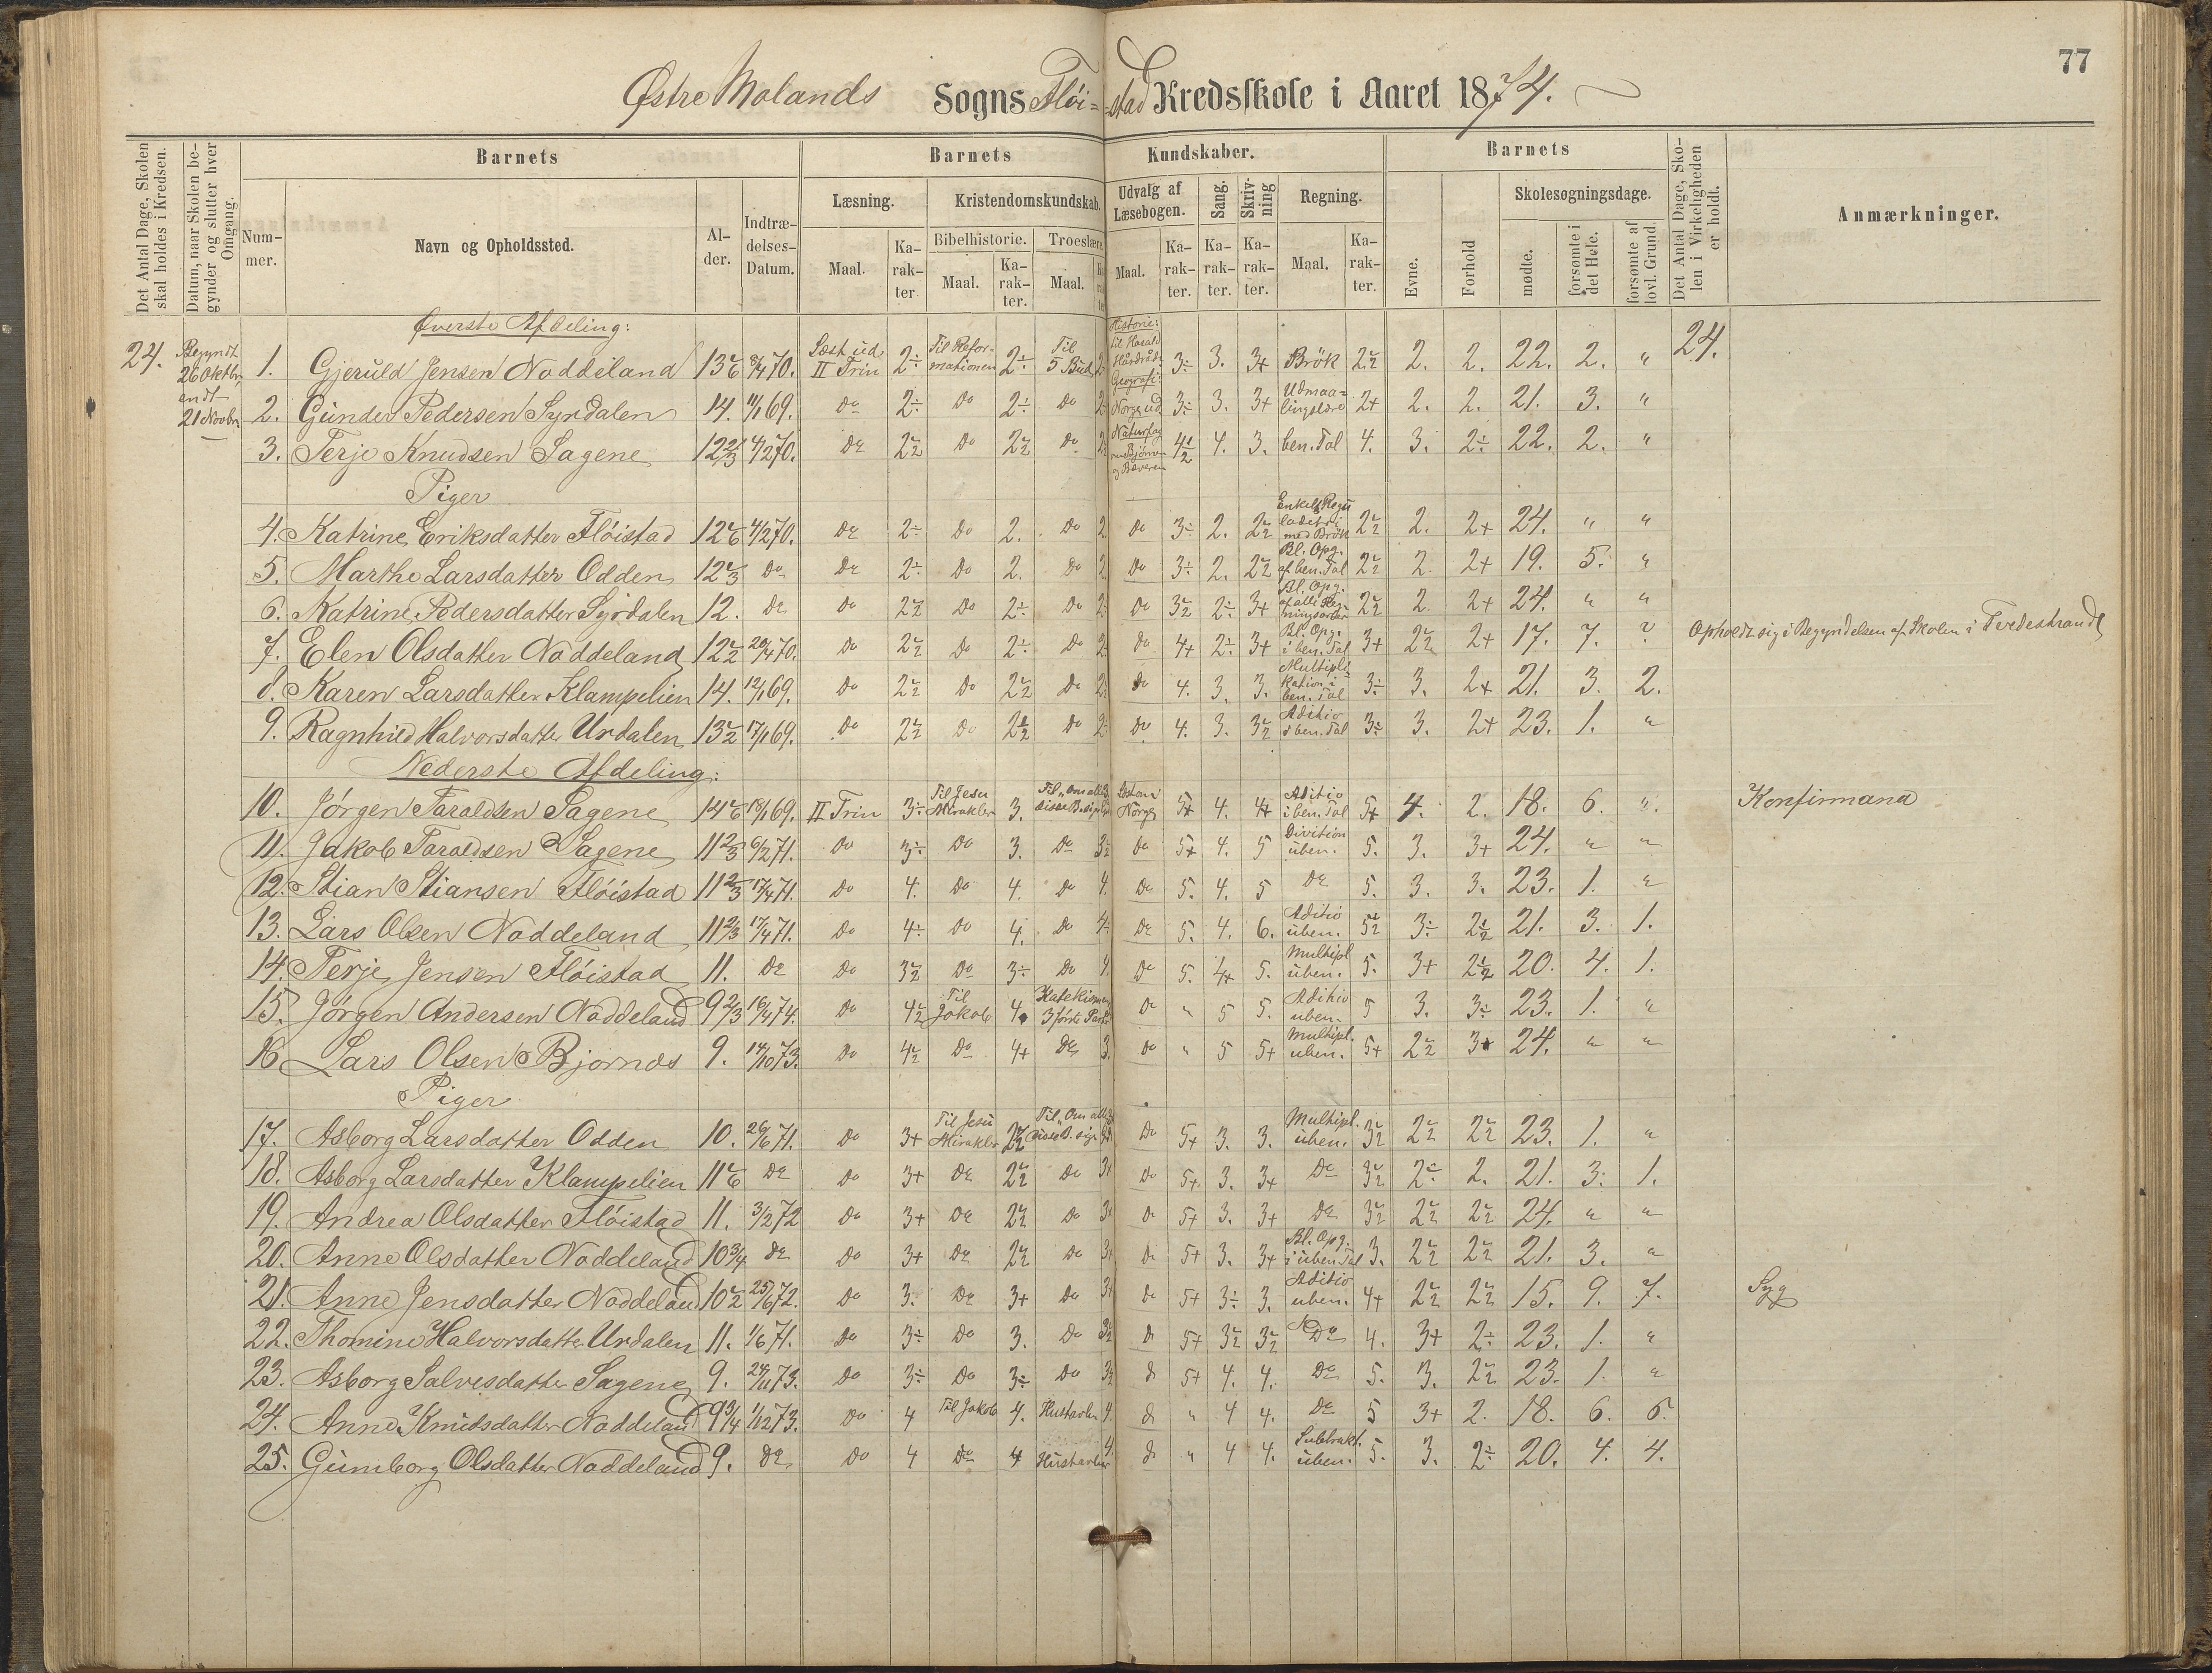 77
Østre Molands Sogns Flöi=stad Kredsskole i Aaret 1874.
Det Antal Dage, Skolen skal holdes i Kredsen.
Datum, naar Skolen begynder og slutter hver Omgang.
Barnets
Nummer.
Navn og Opholdssted.
Alder.
Indtrædelses-Datum.
Barnets Kundskaber.
Læsning.
Maal.
Karakter
Kristendomskundskab.
Bibelhistorie.
Maal.
Karakter.
Troeslære.
Maal.
Udvalg af Læsebogen.
Maal.
Karakter.
Sang.
Karakter.
Skrivning
Karakter.
Regning.
Maal.
Karakter.
Barnets
Evne.
Forhold
Skolesøgningsdage.
mødte.
forsømte i det Hele.
forsømte af lovl. Grund.
Det Antal Dage, Skolen i Virkeligheden er holdt.
Anmærkninger.
Øverste Afdeling:
24. Begyndt 26 Oktbr. endt 21 Novbr.
1. Gjeruld Jensen Noddeland 13 70. Læst ud II Trin 2÷ Til Reformationen 2÷ Til 5 Bud Historie: til Harald Hårdråde 3÷ 3. 3+ Brök 2½ 2. 2. 22. 2. " 24.
2. Gunder Pedersen Syrdalen 14. 11/1 69. Do 2÷ Do 2÷ Do Geografi: Norge ud 3÷ 3. 3+ Udmaalingslære 2+ 2. 2. 21. 3. "
3. Terje Knudsen Sagene 12 2/3 4/2 70. Do 2½ Do 2½ Do Naturfag 4½ 4. 3. ben. Tal 4. 3. 2÷ 22. 2. "
Piger
4. Katrine Eriksdatter Flöistad 12 4/2 70. Do 2÷ Do 2. Do 2. Do 3÷ 2. 2½ Enkelt Reguladetri med Brök 2½ 2. 2+ 24. " "
5. Marthe Larsdatter Odden 12 2/3 Do Do 2÷ Do 2. Do 2 Do 3÷ 2. 2½ Bl. Opg. af ben. Tal 2½ 2. 2+ 19. 5. "
6. Katrine Pedersdatter Syrdalen 12. Do Do 2½ Do 2÷ Do Do 3½ 2÷ 3+ Bl. Opg. af alle Regningsarter 2½ 2. 2+ 24. " "
7. Elen Olsdatter Noddeland 12½ 20/4 70. Do 2½ Do 2÷ Do Do 4+ 2÷ 3+ Bl. Opg. i ben. Tal 3+ 2½ 2+ 17. 7. ? Opholdt sig i Begyndelsen af Skolen i Tvedestrand
8. Karen Larsdatter Klampelien 14. 12/1 69. Do 2½ Do 2½ Do Do 4. 3. 3. Multiplikation i ben. Tal 3÷ 3. 2+ 21. 3. 2.
9. Ragnhild Halvorsdatter Urdalen 13½ 17/1 69. Do 2½ Do 2½ Do Do 4. 3. 3½ Aditio i ben. Tal 3÷ 3. 2+ 23. 1. "
Nederste Afdeling:
10. Jörgen Taraldsen Sagene 14 18/1 69. II Trin 3÷ Til Jesu Mirakler 3. Norge 5+ 4. 4+ Aditio i ben. Tal 5+ 4. 2. 18. 6. " Konfirmand
11. Jakob Taraldsen Sagene 11 2/3 6/2 71. Do 3÷ Do 3. Do 3½ Do 5+ 4. 5 Division üben. 5. 3. 3+ 24. " "
12. Stian Stiansen Flöistad 11 2/3 17/4 71. Do 4. Do 4. Do 4. Do 5. 4. 5 Do 5. 3. 3. 23. 1. "
13. Lars Olsen Noddeland 11 2/3 17/4 71. Do 4÷ Do 4. Do 4÷ Do 5. 4. 6. Aditio üben. 5½ 3÷ 2½ 21. 3. 1.
14. Terje Jensen Flöistad 11. Do Do 3½ Do 3÷ Do 4. Do 5. 4+ 5. Multipl üben. 5. 3+ 2½ 20. 4. 1.
15. Jörgen Andersen Noddeland 9 2/3 16/4 74. Do 4½ Til Jakob 4. 3 förste Parter Do " 5 5. Aditio uben. 5 3. 3÷ 23. 1. "
16 Lars Olsen Bjornæs 9. 14/10 73. Do 4½ Do 4+ Do 3. Do " 5 5+ Multipl. uben. 5+ 2½ 3+ 24. " "
Piger
17. Asborg Larsdatter Odden 10. 26/6 71. Do 3+ Til Jesu Mirakler 2½ Do 5+ 3. 3. Multipl. üben. 3½ 2½ 2½ 23. 1. "
18. Asborg Larsdatter Klampelien 11 Do Do 3+ Do 2½ Do 3+ Do 5+ 3. 3+ Do 3½ 2÷ 2. 21. 3. 1.
19. Andrea Olsdatter Flöistad 11. 3/2 72 Do 3+ Do 2½ Do 3+ Do 5+ 3. 3+ Do 3½ 2½ 2½ 24. " "
20. Anne Olsdatter Noddeland 10¾ Do Do 3+ Do 2½ Do 3+ Do 5+ 3. 3+ Bl. Opg. i üben Tal 3. 2½ 2½ 21. 3. "
21. Anne Jensdatter Noddeland 10½ 25/6 72. Do 3. Do 3+ Do 3+ Do 5+ 3÷ 3. Aditio uben. 4+ 2½ 2½ 15. 9. 7. Syg
22. Thomine Halvorsdatter Urdalen 11. 1/6 71. Do 3÷ Do 3. Do 3½ D 5+ 3½ 3½ Do 4. 3+ 2÷ 23. 1. "
23. Asborg Salvesdatter Sagene 9. 24/11 73. Do 3÷ Do 3÷ Do 3½ D 5+ 4. 4. Do 5. 3. 2½ 23. 1. "
24. Anne Knudsdatter Noddeland 9¾ 1/12 73. Do 4 Til Jakob 4. Hustavlen 4. D " 4 4. Do 5 3+ 2. 18. 6. 6.
25. Gunborg Olsdatter Noddeland 9. Do Do 4 Do 4 Hustavlen 4. D " 4 4. Subtrakt. üben. 5. 3. 2÷ 20. 4. 4.